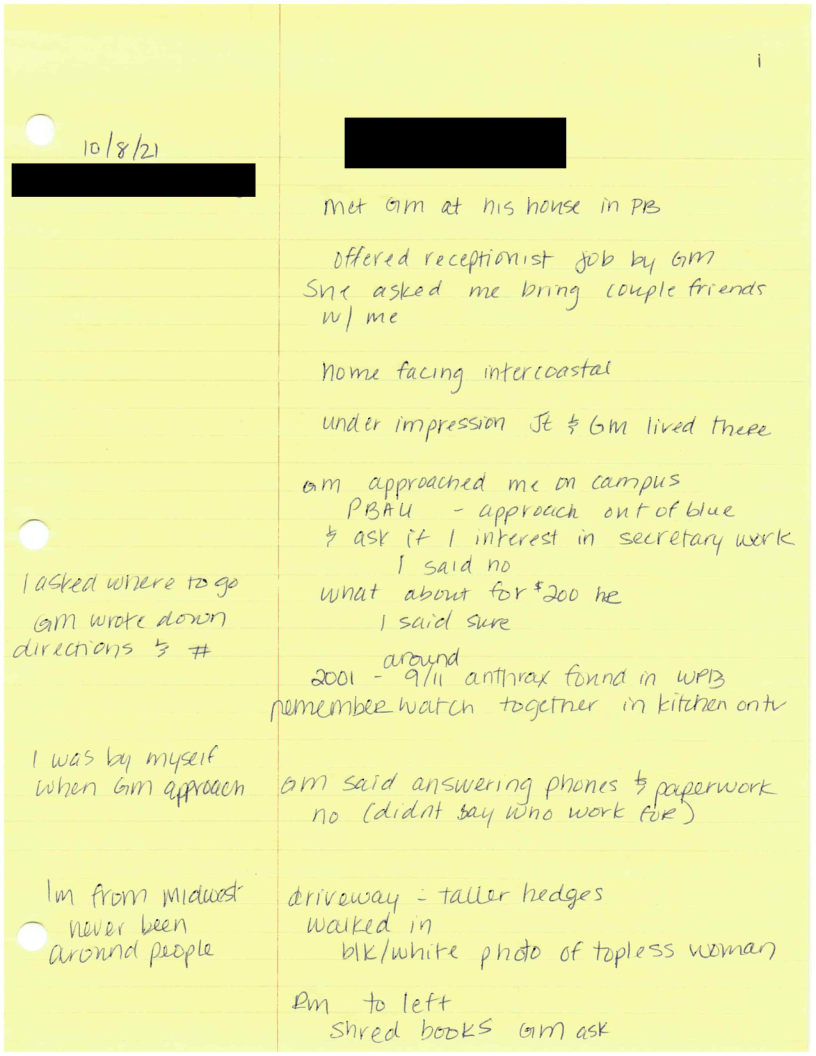 i
10/8/21
Met GM at his house in PB
offered receptionist job by GM
She asked me bring couple friends
w/ me
home facing intercoastal
under impression JE & GM lived there
GM approached me on campus
PBAU - approach out of blue
& ask if I interest in secretary work
I said no
I asked where to go
what about for $200 hr
GM wrote down
I said sure
directions & #
around
2001 - 9/11 anthrax found in WPB
remember watch together in kitchen on tv
I was by myself
when GM approach
GM said answering phones & paperwork
no (didnt say who work for)
Im from Midwest
driveway - taller hedges
never been
walked in
around people
blk/white photo of topless woman
Rm to left
shred books GM ask